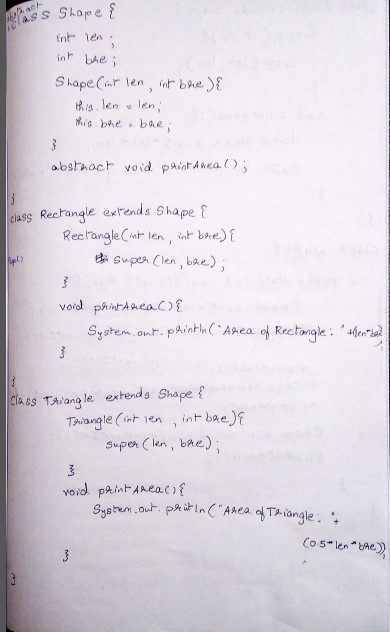 abstract
class Shape {
int len ;
int bre ;
Shape (int len , int bre) {
this. len = len;
this. bre = bre;
}
abstract void printArea();
}
class Rectangle extends Shape {
Rectangle (int len , int bre) {
super (len, bre) ;
}
void printArea() {
System.out.println("Area of Rectangle : " + (len*bre)
}
}
Class Triangle extends Shape {
Triangle (int len , int bre) {
super (len, bre);
}
void printArea() {
System.out. println ("Area of Triangle : " +
(0.5*len*bre));
}
}